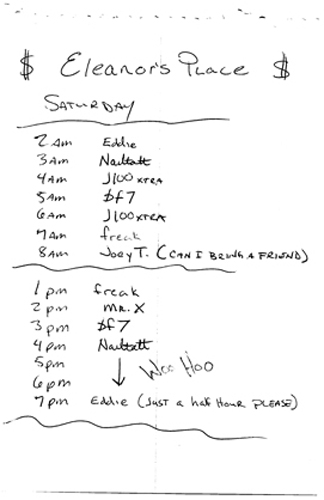 $ Eleanor's Place $
SATURDAY
2 Am Eddie
3 Am
4 Am J100 XTRA
5 Am $f7
6 Am J100 XTRA
7 Am freak
8 Am Joey T. (CAN I BRING A FRIEND)
1 pm freak
2 pm MR. X
3 pm $f7
4 pm
5 pm Woo Hoo
6 pm
7 pm Eddie (JUST a half HOUR PLEASE)